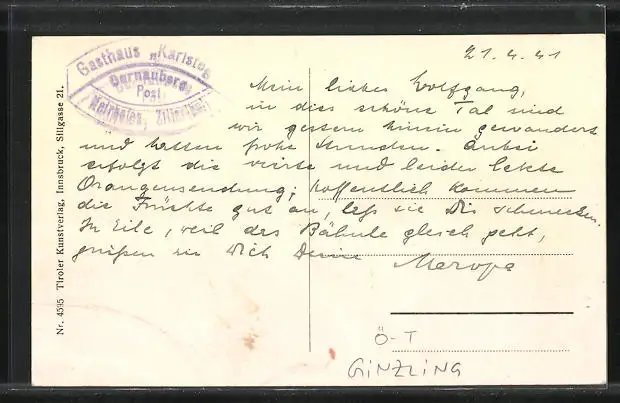 Gasthaus „Karlsteg"
Dornauberg
Post
Mayrhofen, Zillerthal
21. 4. 41
Mein lieber Wolfgang,
in dies schöne Tal sind
wir gestern hinein gewandert
und hatten frohe Stunden. Anbei
erfolgt die vierte und leider letzte
Orangensendung; hoffentlich kommen
die Früchte gut an, laß sie Dir schmecken.
In Eile, weil das Bähnle gleich geht,
grüßen wir Dich Deine
Nr. 4595 Tiroler Kunstverlag, Innsbruck, Sillgasse 21.
Ö-T
GINZLING